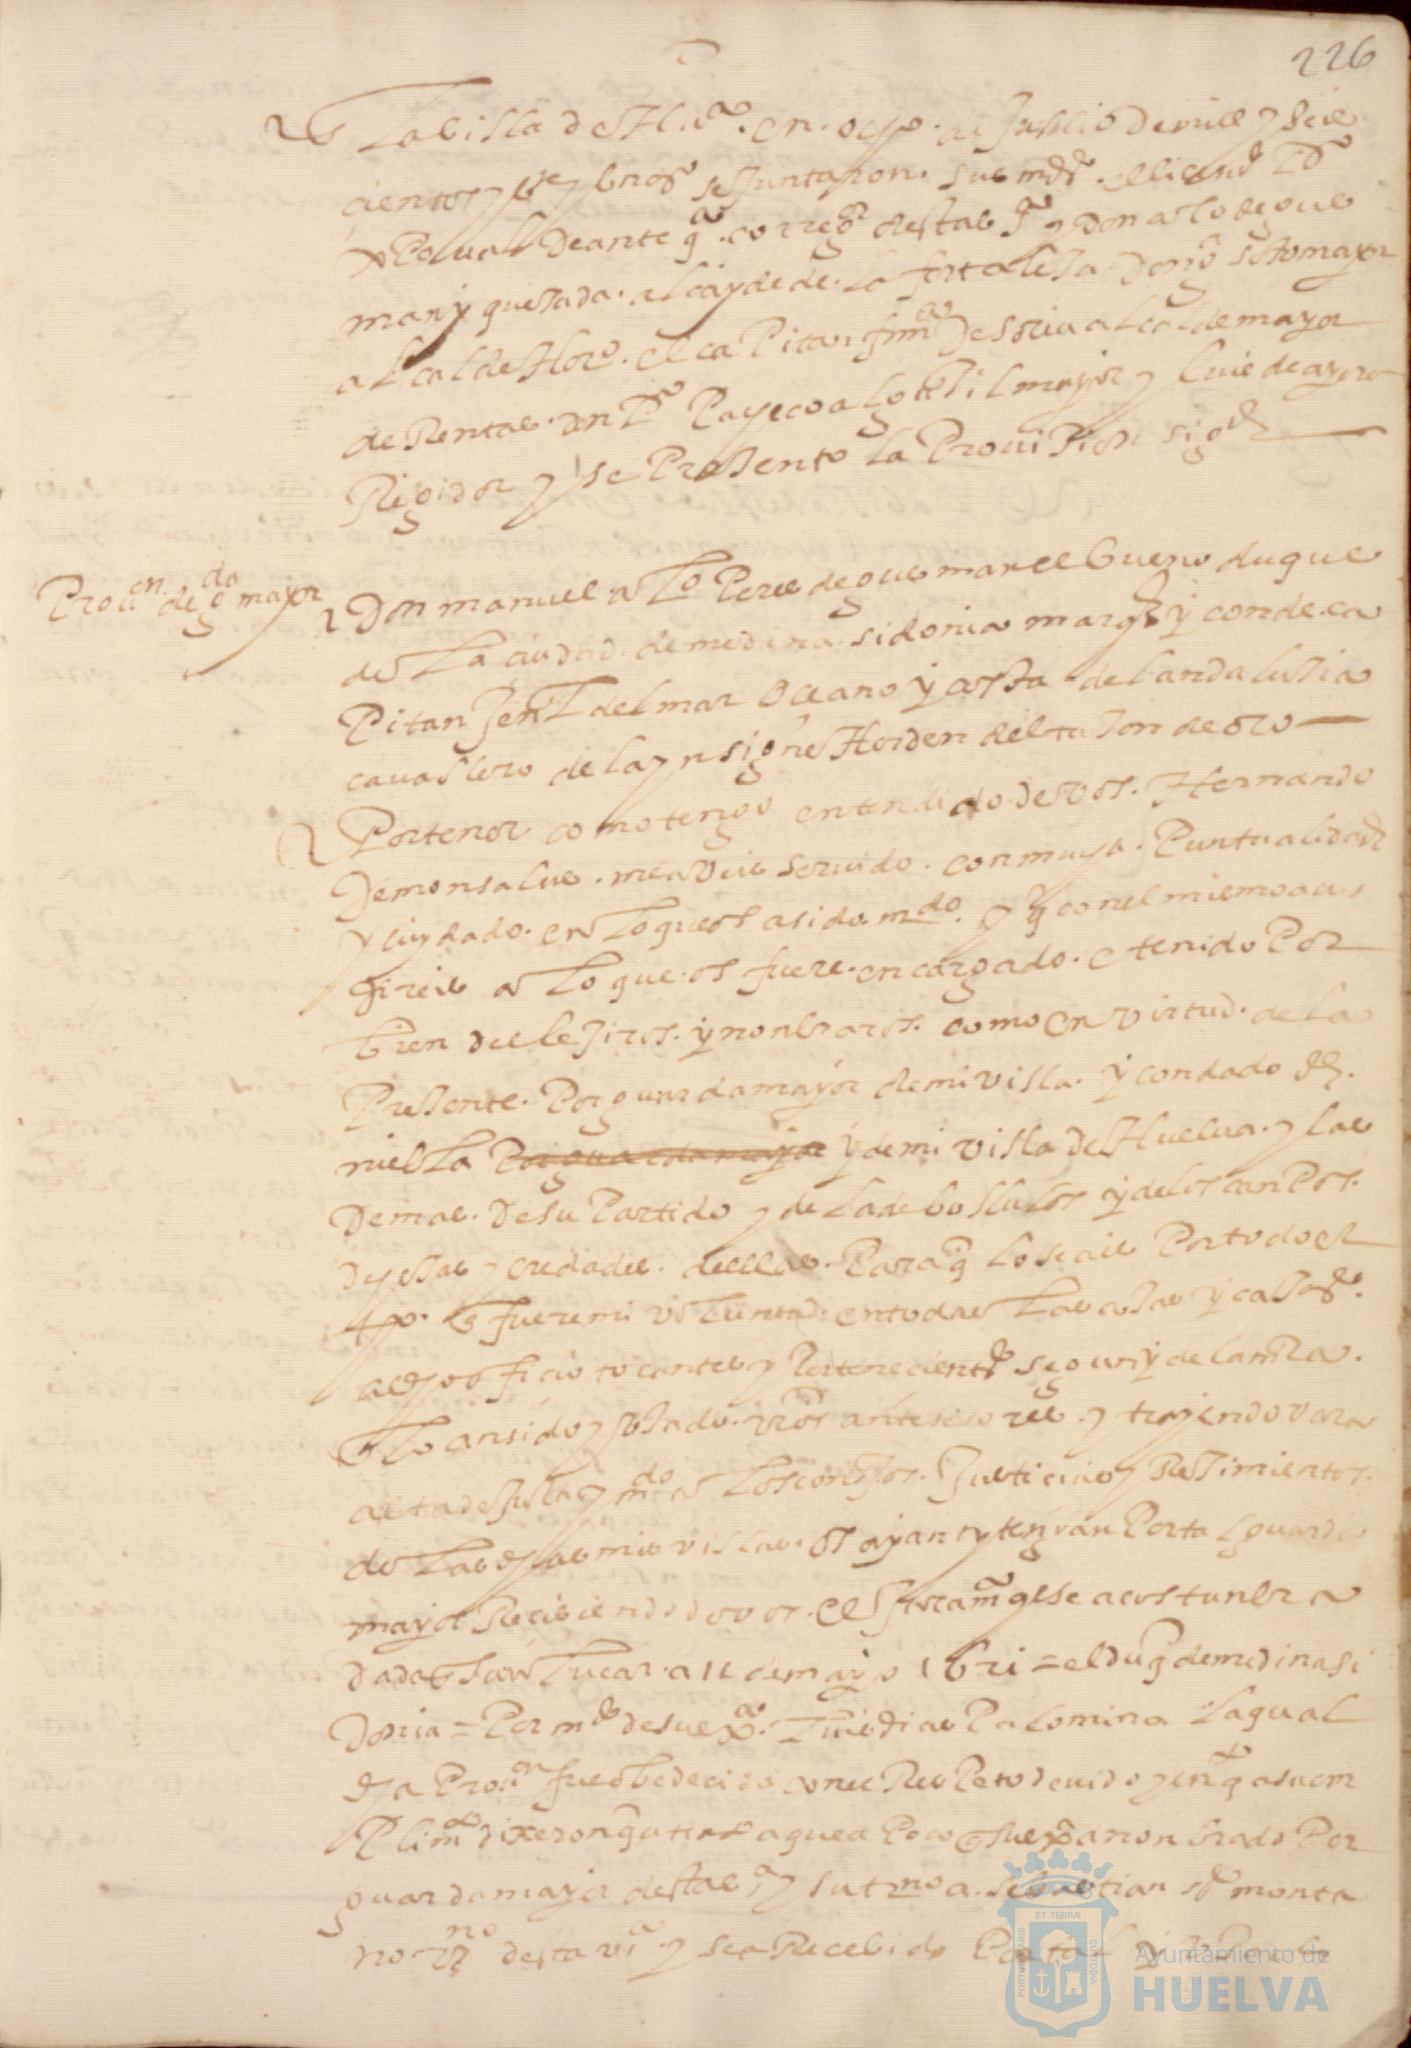 226
La billa de Hulª. en. ocho. de Jullio de mill y seis
cientos y tre y se juntaron. sus mds. el licend
corregor desta vª y Don alº de gus
man y quesada. alcayde de. la fortaleza Don soto mayor
alcalde Hordº. el capitan de soria alcalde mayor
de Rentas. don Pº Pacheco alguasil mayor y luis de ayora
Regidor y se Presento la Provision sigte
Provon. de gda mayor
Don manuel alº Perez de gusman el bueno duque
de la ciudad. de medina sidonia marqs y conde. ca
Pitan Jenl del mar oceano y costa del andalusia
cavallero de la ynsigne Horden del tuson de oro
Por tener como tengo entendido de vos. Hernando
de monsalve. me aveis servido. con mucha. Puntualidad
y cuydado. en lo que os a sido. mdo. y q con el mismo acu
direis a lo que. os fuere. encargado. e tenido Por
bien de elejiros. y nonbraros. como en virtud. de la
Presente. Por guarda mayor de mi villa. y condado de
niebla Por guarda mayor y de mi villa de Huelva. y las
demas. de su Partido y de la de bollullos y de los canPos.
dehesas y eredades. dellas. Para q lo seais Por todo el
tpo. q fuere mi voluntad. en todas las cosas y casos.
al dho officio tocantes y Pertenecientes segun y de la mra.
q lo an sido y usado. vros antesesores. y trayendo vara
alta de justa y mdo a los consejos. Justicias y Rejimientos.
de las dhas mis villas. os ayan y tengan Por tal guarda
mayor Recibiendo de vos. el juramº q se acostunbra
dada en san lucar. a 11 de mayo 1631 = el duq de medina si
donia = Por mdo de su exª. luis dias Palomino la qual
dha Provon fue obedecida con el ResPeto devido y en qto a su cum
Plimº dixeron q atento a que a Poco q su exª a nonbrado Por
guarda mayor desta vª y su tno a. sebastian monta
no vzno desta viª. y sea Recebido Por tal y
PORTUS MARIS ET TERRÆ CUSTODIA
Ayuntamiento de
HUELVA